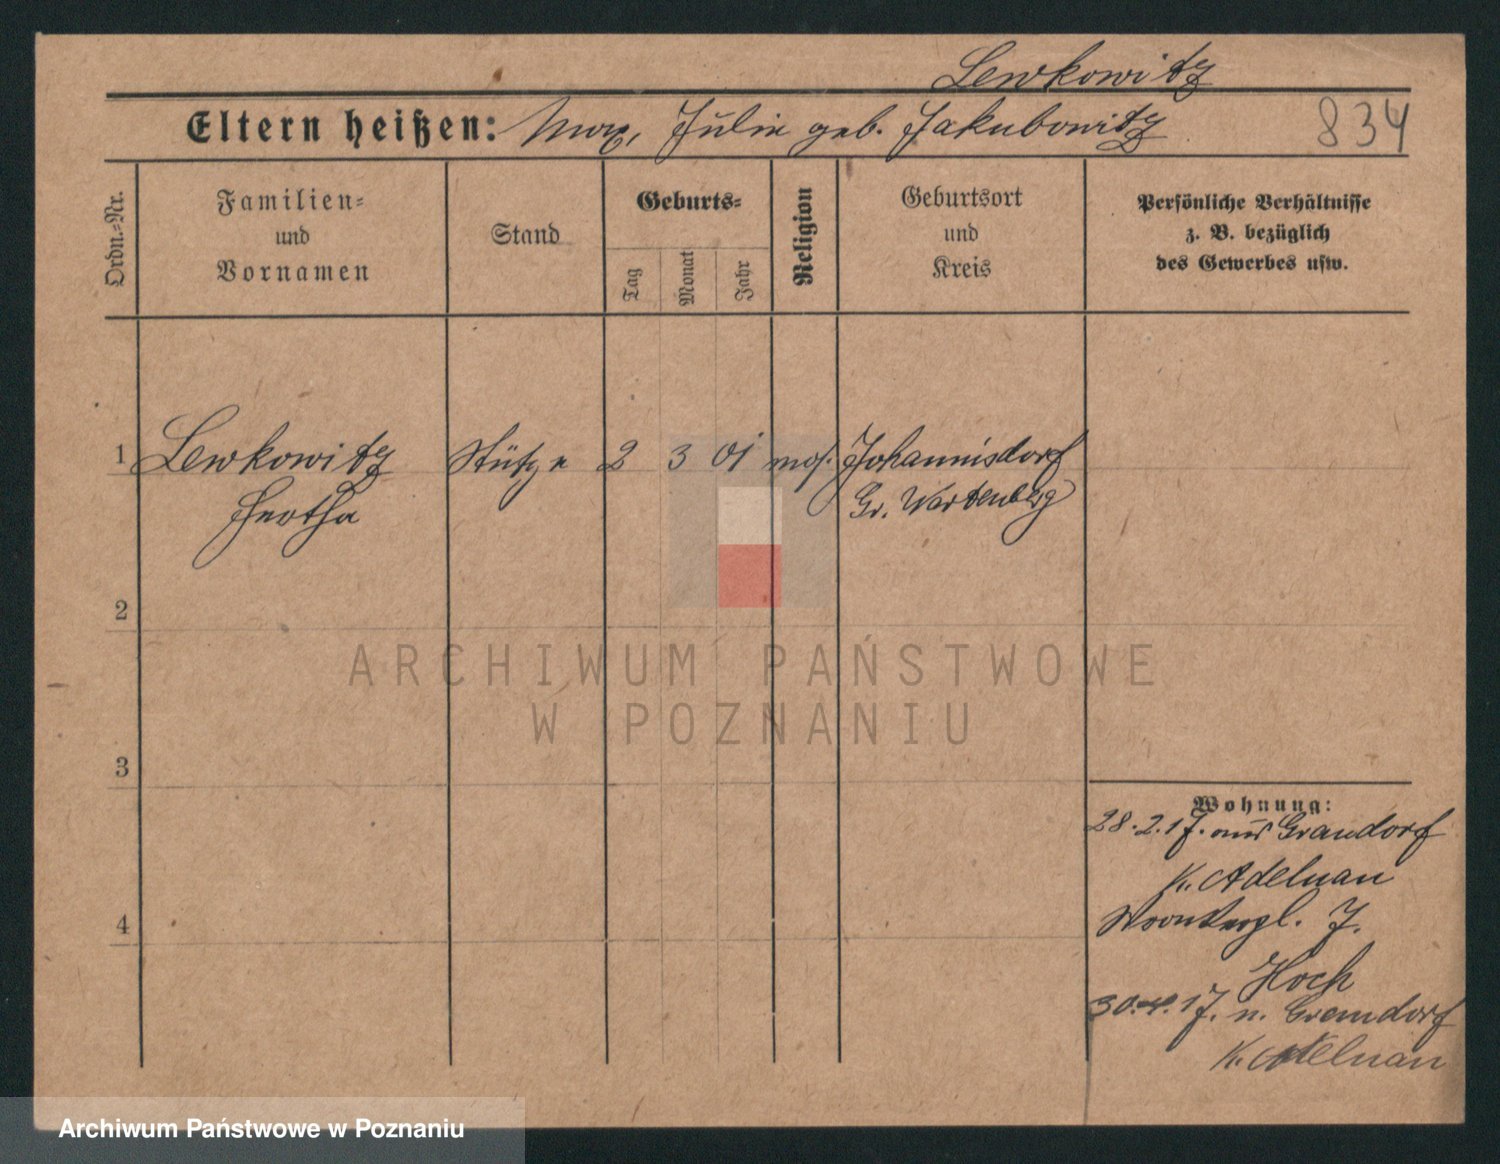 Lewkowitz
Eltern heißen: Max, Julie geb. Jakubowitz
834
Ordn.-Nr.
Familien-
und
Vornamen
Stand
Geburts-
Tag
Monat
Jahr
Religion
Geburtsort
und
Kreis
Persönliche Verhältnisse
z. B. bezüglich
des Gewerbes usw.
1 Lewkowitz Stütze 2 3 01 mos. Johannisdorf
Gr. Wartenberg
2
3
4
Wohnung:
28.2.17. aus Grandorf
K. Adelnau
7.
Hoch
30.4.17. n. Grandorf
K. Adelnau
ARCHIWUM PAŃSTWOWE
W POZNANIU
Archiwum Państwowe w Poznaniu